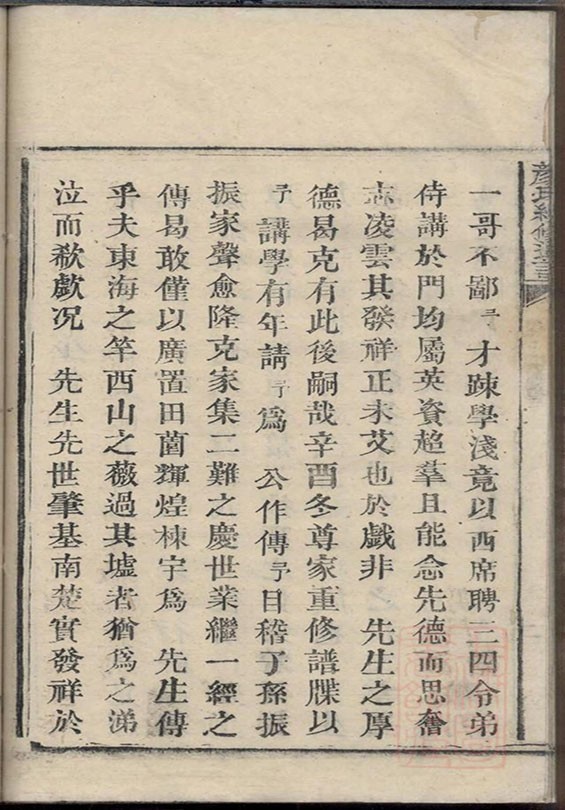 彥氏續修
一哥不鄙予才疎學淺竟以西席聘三四令弟
侍講於門均屬英資超羣且能念先德而思奮
志凌雲其發祥正未艾也於戲非 先生之厚
德曷克有此後嗣哉辛酉冬尊家重修譜牒以
予講學有年請予為 公作傳予目稽子孫振
振家聲愈隆克家集二難之慶世業繼一經之
傳曷敢僅以廣置田菑輝煌棟宇為 先生傳
乎夫東海之竿西山之薇過其墟者猶為之涕
泣而欷歔况 先生先世肇基南楚實發祥於